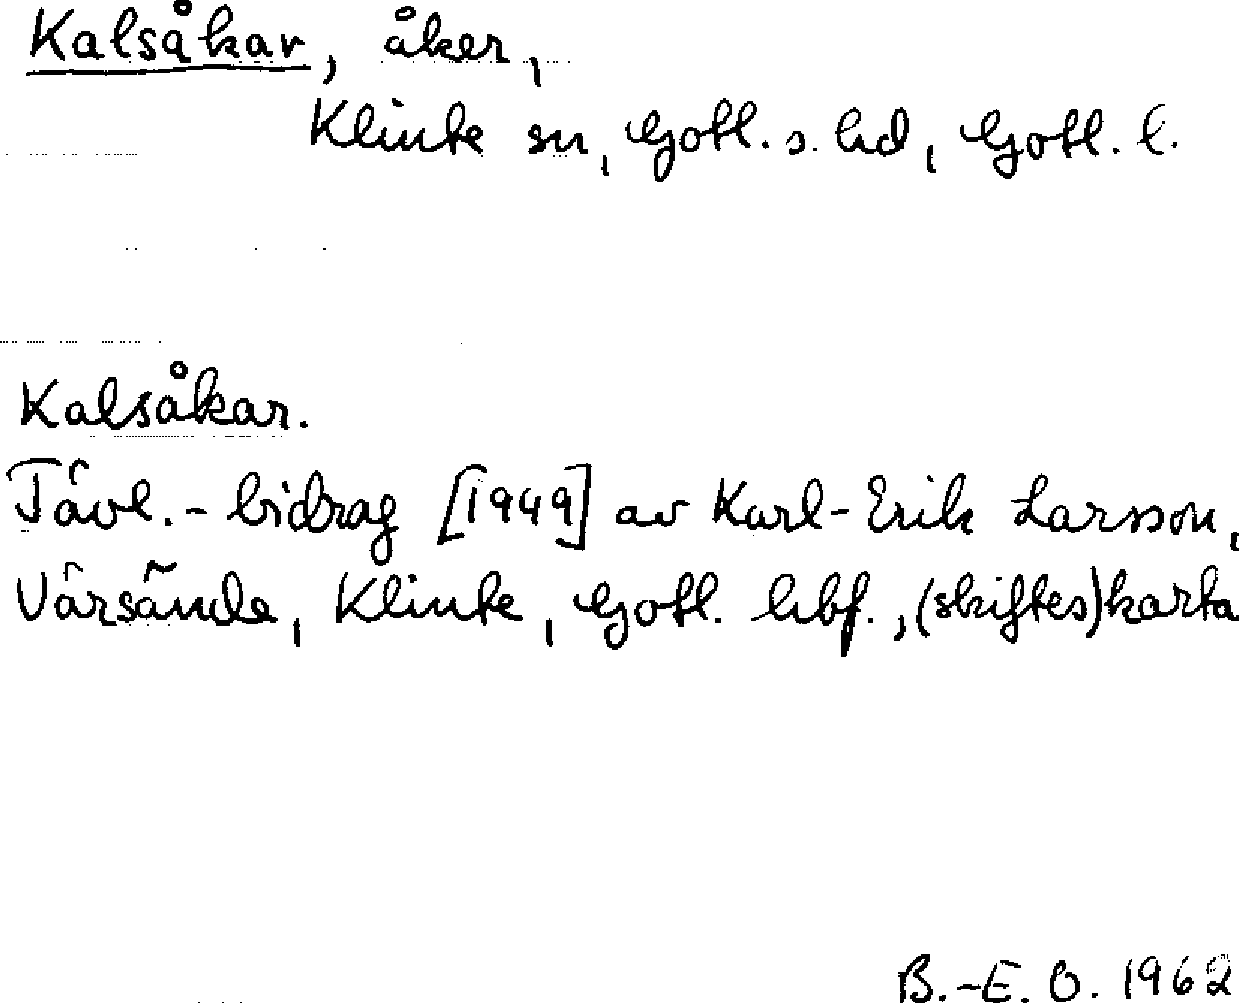 Kalsåkar, åker,
Klinte sn, Gotl. s. hd, Gotl. l.
Kalsåkar.
Tävl.-bidrag [1949] av Karl-Erik Larsson,
Värsände, Klinte, Gotl. hbf., (skiftes)karta
B.-E. O. 1962